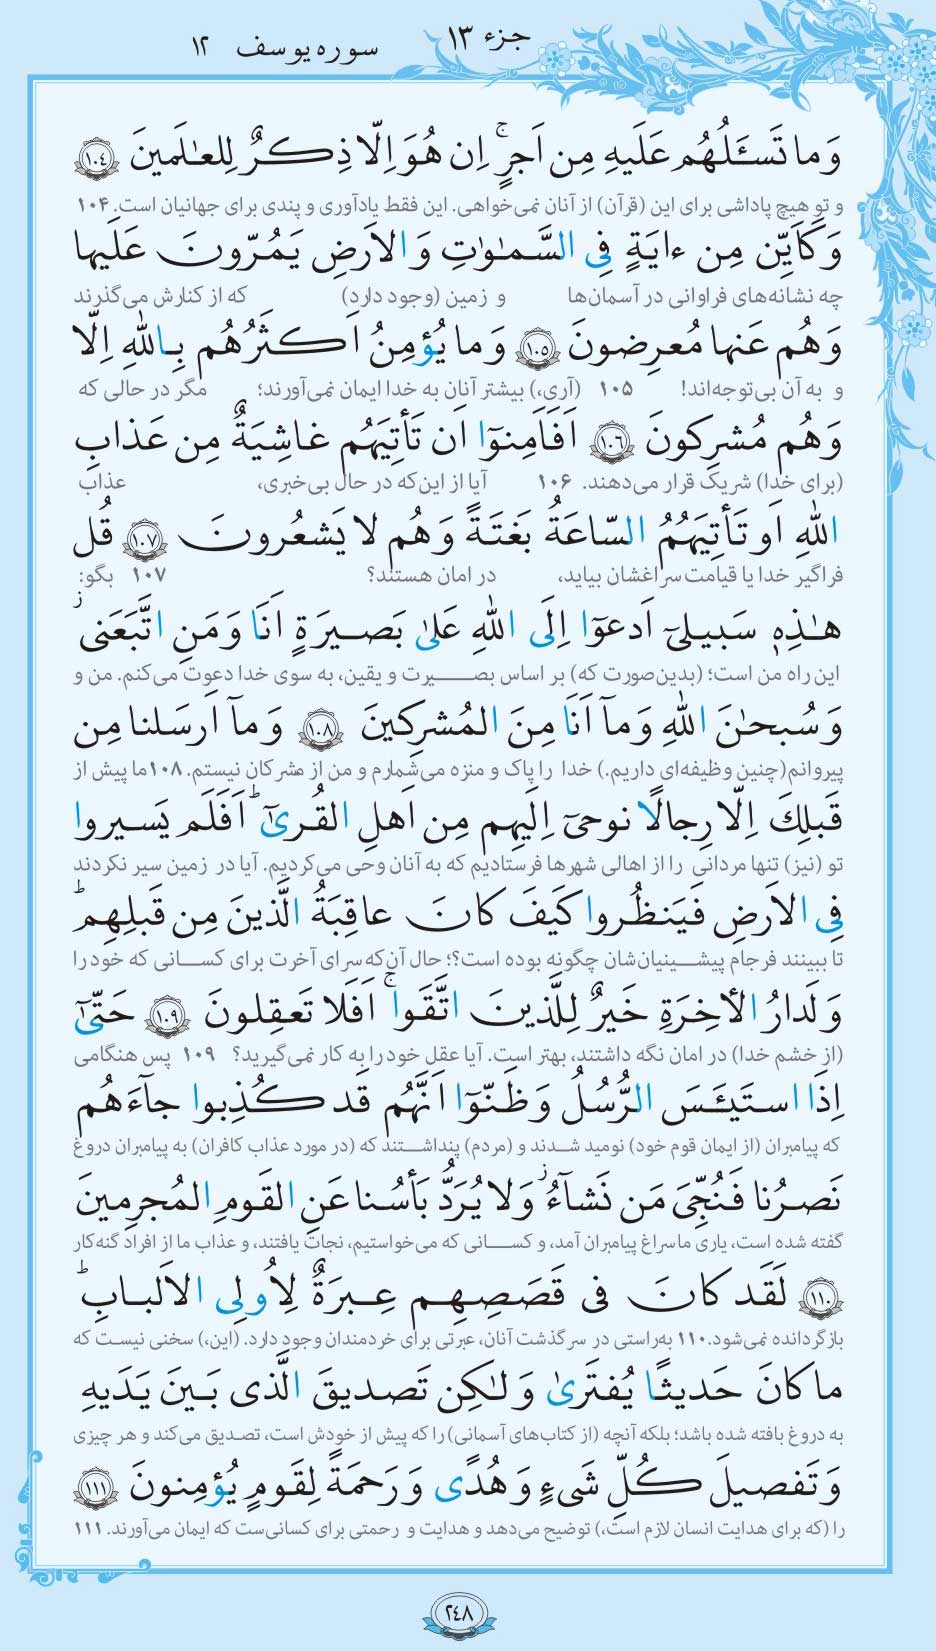 جزء ۱۳
سوره یوسف ۱۲
وَ ما تَسـَٔلُهُم عَلَیهِ مِن اَجرٍ ۚ اِن هُوَ اِلّا ذِکرٌ لِلعـٰلَمینَ ﴿۱۰۴﴾
و تو هیچ پاداشی برای این (قرآن) از آنان نمی‌خواهی. این فقط یادآوری و پندی برای جهانیان است. ۱۰۴
وَ کَاَیِّن مِن ءایَةٍ فِی السَّمـٰوٰتِ وَ الاَرضِ یَمُرّونَ عَلَیها
چه نشانه‌های فراوانی در آسمان‌ها و زمین (وجود دارد) که از کنارش می‌گذرند
وَ هُم عَنها مُعرِضونَ ﴿۱۰۵﴾ وَ ما یُؤمِنُ اَکثَرُهُم بِاللهِ اِلّا
و به آن بی‌توجه‌اند! ۱۰۵ (آری،) بیشتر آنان به خدا ایمان نمی‌آورند؛ مگر در حالی که
وَ هُم مُشرِکونَ ﴿۱۰۶﴾ اَفَاَمِنوٓا اَن تَأتِیَهُم غاشِیَةٌ مِن عَذابِ
(برای خدا) شریک قرار می‌دهند. ۱۰۶ آیا از این‌که در حال بی‌خبری، عذاب
اللهِ اَو تَأتِیَهُمُ السّاعَةُ بَغتَةً وَ هُم لا یَشعُرونَ ﴿۱۰۷﴾ قُل
فراگیر خدا یا قیامت سراغشان بیاید، در امان هستند؟ ۱۰۷ بگو:
هـٰذِهٖ سَبیلیٓ اَدعوٓا اِلَی اللهِ عَلیٰ بَصیرَةٍ اَنَا وَ مَنِ اتَّبَعَنی ۖز
این راه من است؛ (بدین‌صورت که) بر اساس بصـــیرت و یقین، به سوی خدا دعوت می‌کنم. من و
وَ سُبحـٰنَ اللهِ وَ مآ اَنَا مِنَ المُشرِکینَ ﴿۱۰۸﴾ وَ مآ اَرسَلنا مِن
پیروانم (چنین وظیفه‌ای داریم.) خدا را پاک و منزه می‌شمارم و من از مشرکان نیستم. ۱۰۸ ما پیش از
قَبلِکَ اِلّا رِجالًا نوحیٓ اِلَیهِم مِن اَهلِ القُریٰٓ ؕ اَفَلَم یَسیروا
تو (نیز) تنها مردانی را از اهالی شهرها فرستادیم که به آنان وحی می‌کردیم. آیا در زمین سیر نکردند
فِی الاَرضِ فَیَنظُروا کَیفَ کانَ عاقِبَةُ الَّذینَ مِن قَبلِهِم ؕ
تا ببینند فرجام پیشـــینیان‌شان چگونه بوده است؟؛ حال آن‌که سرای آخرت برای کســـانی که خود را
وَ لَدارُ الأخِرَةِ خَیرٌ لِلَّذینَ اتَّقَوا ۚ اَفَلا تَعقِلونَ ﴿۱۰۹﴾ حَتّیٰٓ
(از خشم خدا) در امان نگه داشتند، بهتر است. آیا عقل خود را به کار نمی‌گیرید؟ ۱۰۹ پس هنگامی
اِذَا استَیـَٔسَ الرُّسُلُ وَ ظَنّوٓا اَنَّهُم قَد کُذِبوا جآءَهُم
که پیامبران (از ایمان قوم خود) نومید شـــدند و (مردم) پنداشـــتند که (در مورد عذاب کافران) به پیامبران دروغ
نَصرُنا فَنُجِّیَ مَن نَشآءُ ز وَ لا یُرَدُّ بَأسُنا عَنِ القَومِ المُجرِمینَ
گفته شده است، یاری ما سراغ پیامبران آمد، و کســـانی که می‌خواستیم، نجات یافتند، و عذاب ما از افراد گنه‌کار
﴿۱۱۰﴾ لَقَد کانَ فی قَصَصِهِم عِبرَةٌ لِاُولِی الاَلبابِ ؕ
بازگردانده نمی‌شود. ۱۱۰ به‌راستی در سرگذشت آنان، عبرتی برای خردمندان وجود دارد. (این،) سخنی نیست که
ما کانَ حَدیثًا یُفتَریٰ وَ لـٰکِن تَصدیقَ الَّذی بَینَ یَدَیهِ
به دروغ بافته شده باشد؛ بلکه آنچه (از کتاب‌های آسمانی) را که پیش از خودش است، تصـدیق می‌کند و هر چیزی
وَ تَفصیلَ کُلِّ شَیءٍ وَ هُدًی وَ رَحمَةً لِقَومٍ یُؤمِنونَ ﴿۱۱۱﴾
را (که برای هدایت انسان لازم است،) توضیح می‌دهد و هدایت و رحمتی برای کسانی‌ست که ایمان می‌آورند. ۱۱۱
۲۴۸